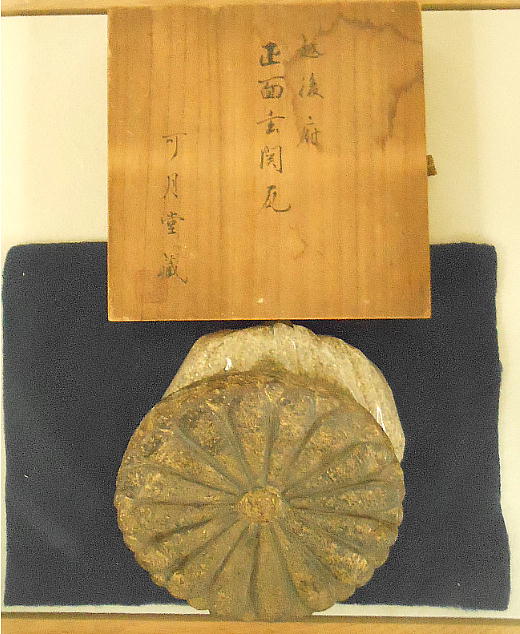 越後府
正面玄関瓦
可月堂蔵